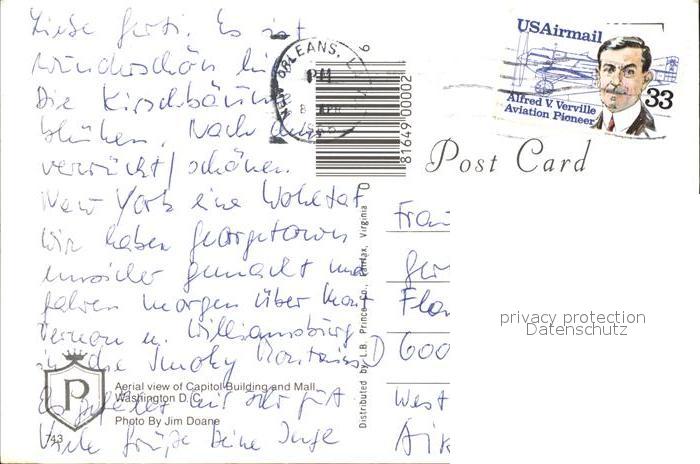 Liebe Gerti. Es ist
wunderschön hi
Die Kirschbäum
blühen. Nach dem
verrückt/schönen
New York eine Wohltat
Wir haben Georgetown
unsicher gemacht und
fahren morgen über Mont
Vernon u. Williamsburg
in die Smoky Mountains
Es gefällt mir sehr gut
Viele Grüße Deine Inge
NEW ORLEANS, L
PM
8 APR
81649 00002
USAirmail
33
Alfred V. Verville
Aviation Pioneer
Post Card
Distributed by L.B. Prince Co., Fairfax, Virginia
Frau
Ger
Fla
D 600
West
privacy protection
Datenschutz
P
Aerial view of Capitol Building and Mall
Washington D. C.
Photo By Jim Doane
743